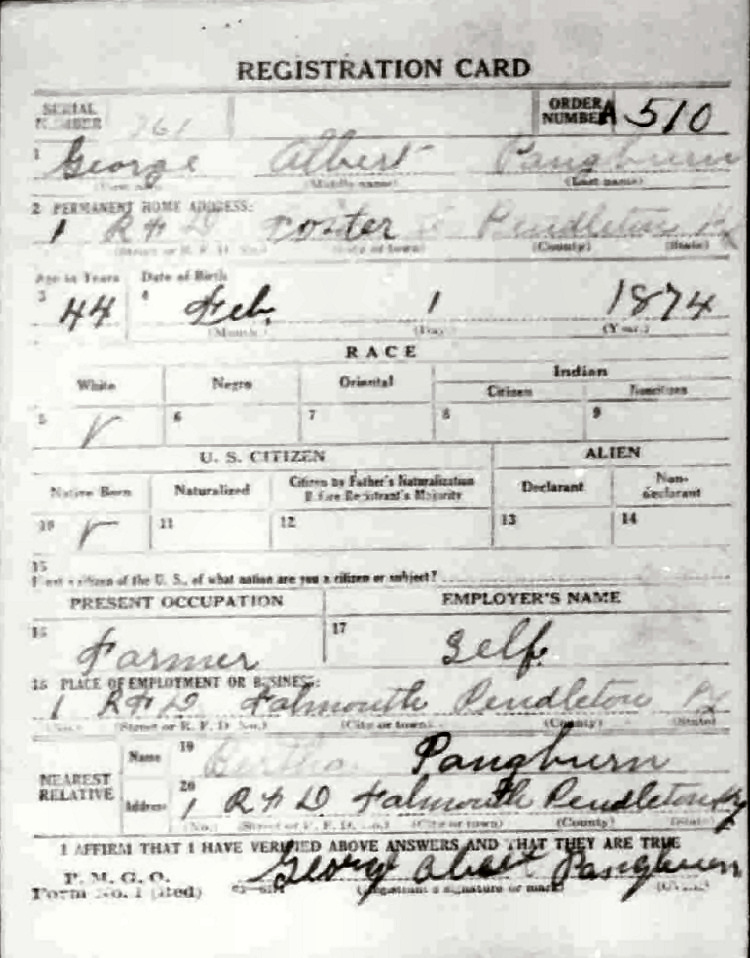 REGISTRATION CARD
SERIAL NUMBER 761 ORDER NUMBER A 510
1 George Albert Pangburn
(First name) (Middle name) (Last name)
2 PERMANENT HOME ADDRESS:
1 RFD Foster Pendleton Ky
(Street or R. F. D. No.) (City or town) (County) (State)
Age in Years Date of Birth
3 44 4 Feb. 1 1874
(Month.) (Day.) (Year.)
RACE
White Negro Oriental Indian
Citizen Noncitizen
5 6 7 8 9
U. S. CITIZEN ALIEN
Native Born Naturalized Citizen by Father's Naturalization Before Registrant's Majority Declarant Non-declarant
10 11 12 13 14
15
If not a citizen of the U. S., of what nation are you a citizen or subject?
PRESENT OCCUPATION EMPLOYER'S NAME
16 Farmer 17 Self.
18 PLACE OF EMPLOYMENT OR BUSINESS:
1 RFD Falmouth Pendleton Ky
(No.) (Street or R. F. D. No.) (City or town) (County) (State)
NEAREST RELATIVE Name 19 Bertha Pangburn
Address 20 1 RFD Falmouth Pendleton Ky
(No.) (Street or R. F. D. No.) (City or town) (County) (State)
I AFFIRM THAT I HAVE VERIFIED ABOVE ANSWERS AND THAT THEY ARE TRUE
P. M. G. O.
Form No. 1 (Red) George Albert Pangburn
(Registrant's signature or mark)